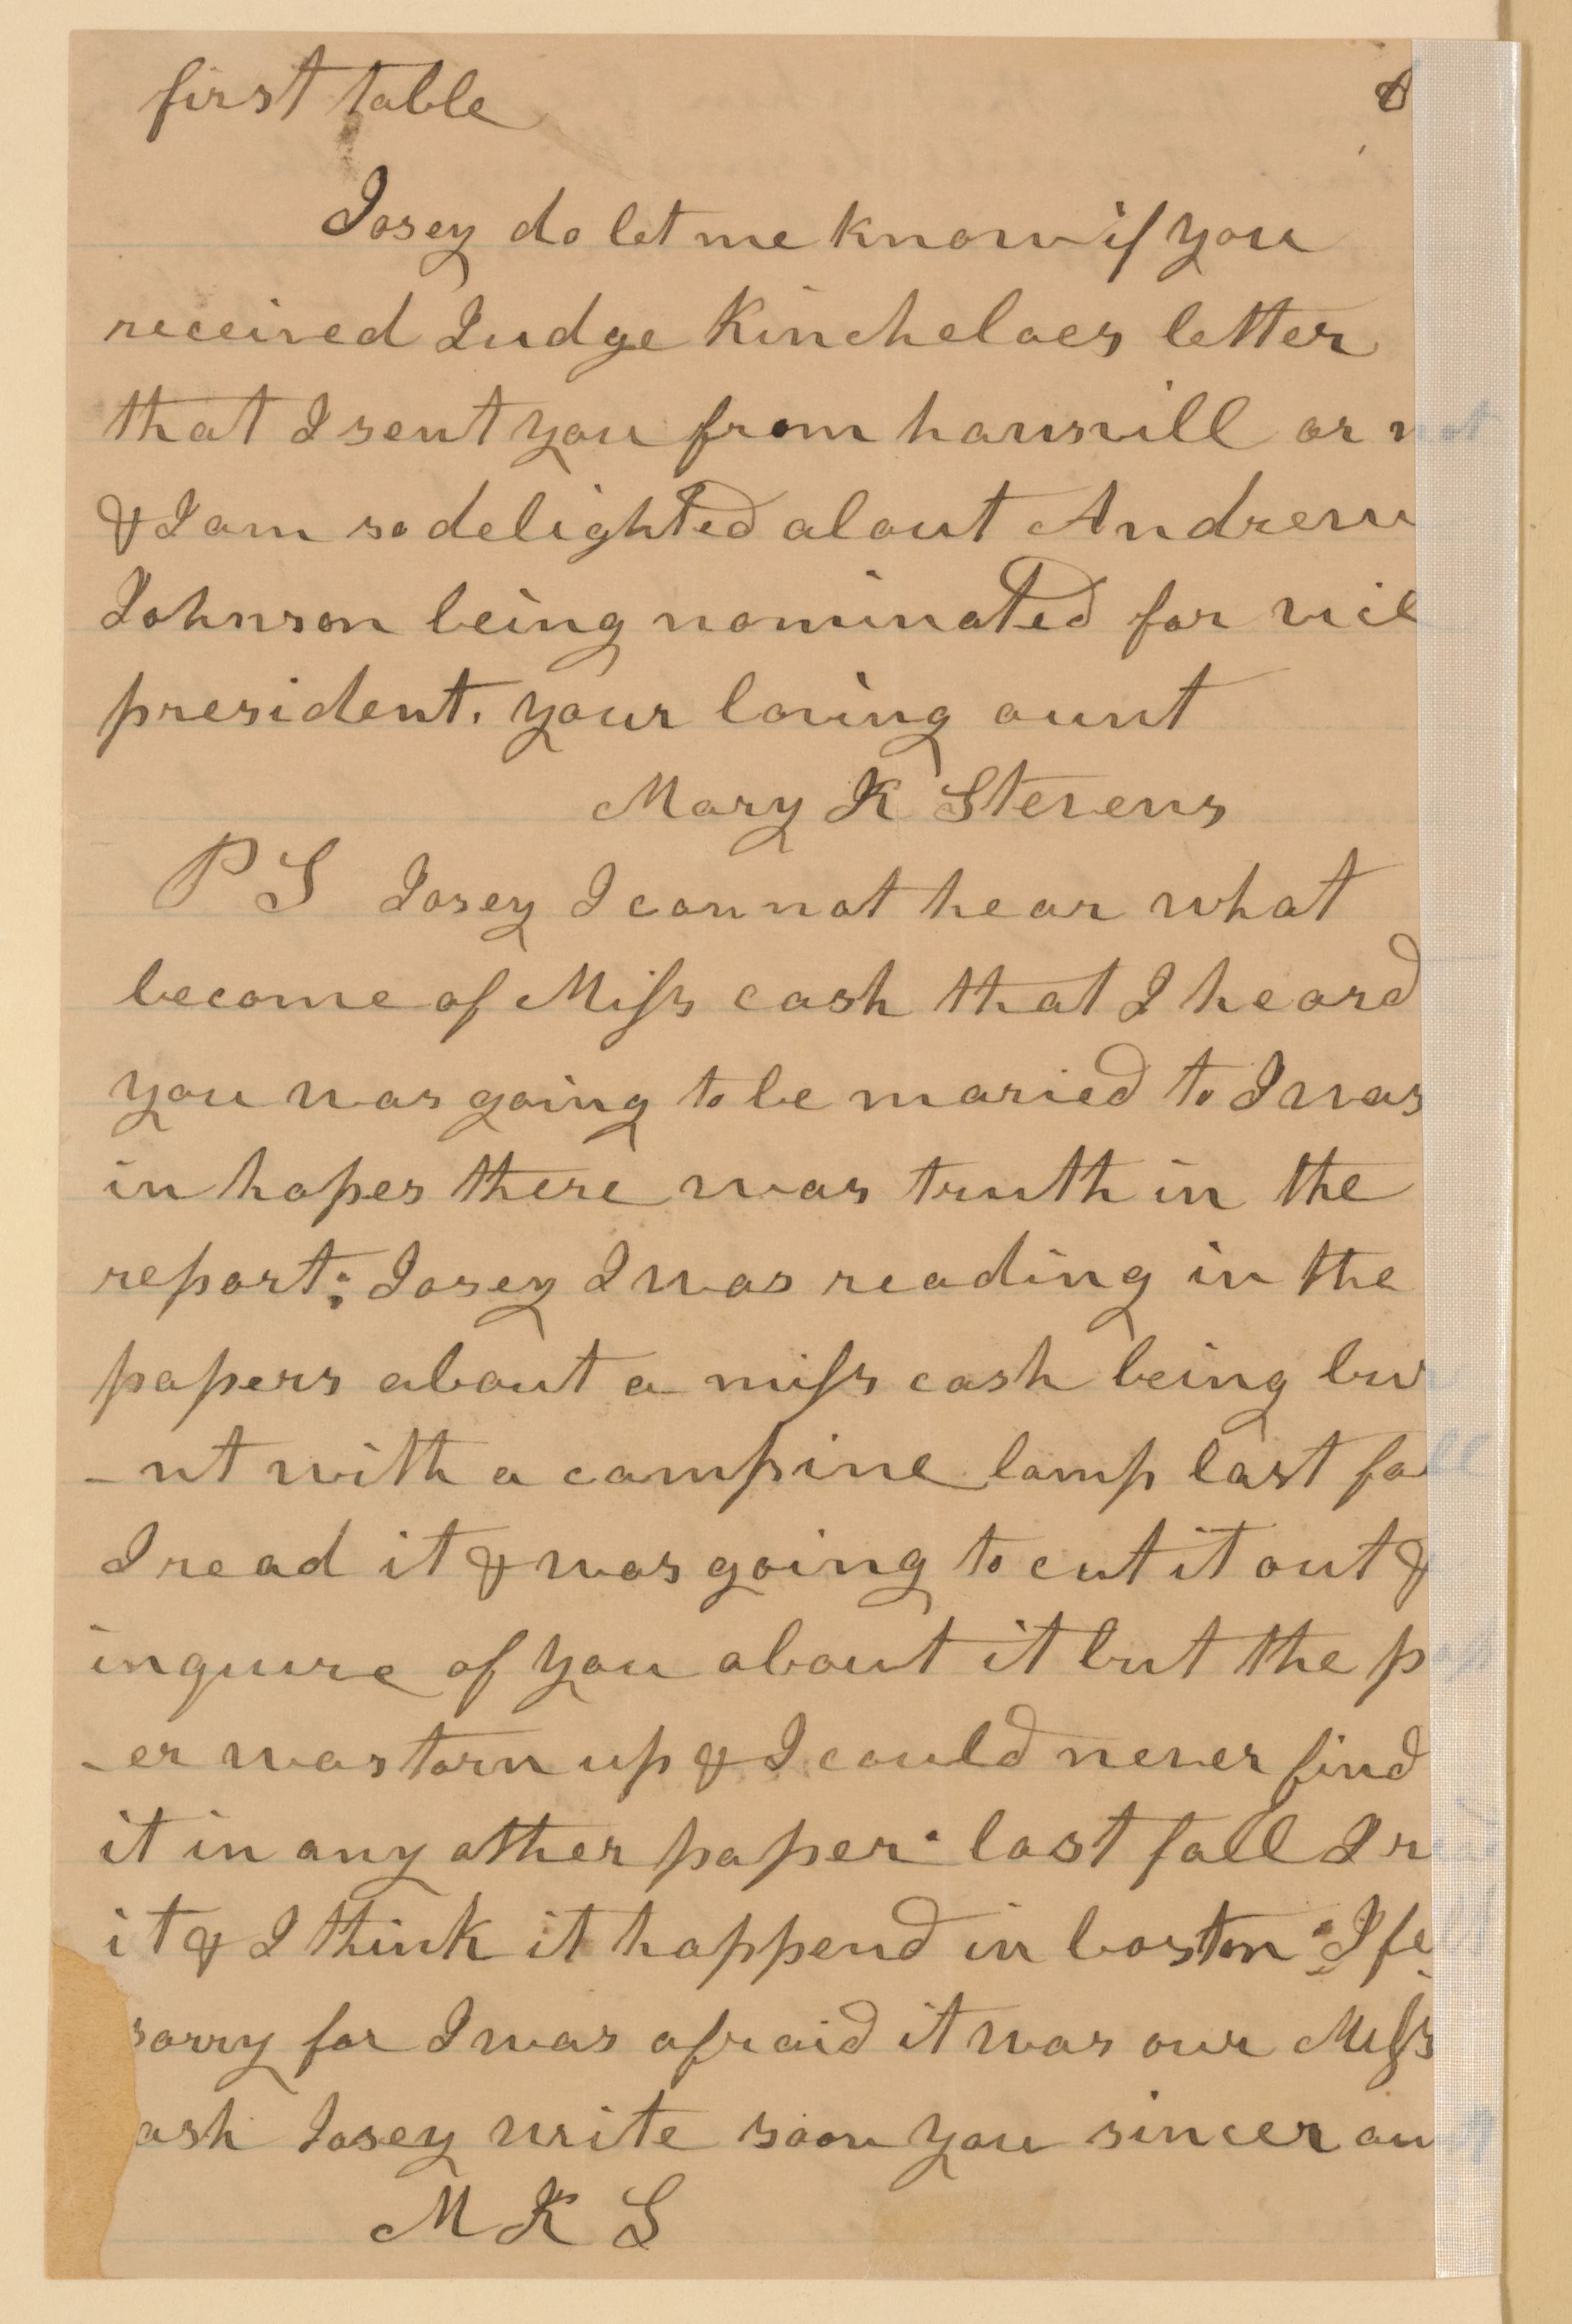 first table
8
Josey do let me know if you
received Judge Kincheloes letter
that I sent you from hawsvill or not
& I am so delighted about Andrew
Johnson being nominated for vice
president. your loving aunt
Mary K Stevens
P S Josey I can not hear what
become of Miss cash that I heard
you was going to be maried to I was
in hopes there was truth in the
report: Josey I was reading in the
papers about a miss cash being bur
-nt with a campine lamp last fall
I read it & was going to cut it out &
inquire of you about it but the pap
-er was torn up & I could never find
it in any other paper. last fall I read
it & I think it happend in boston: I felt
sorry for I was afraid it was our Miss
ash Josey write soon you sincer aunt
M K S